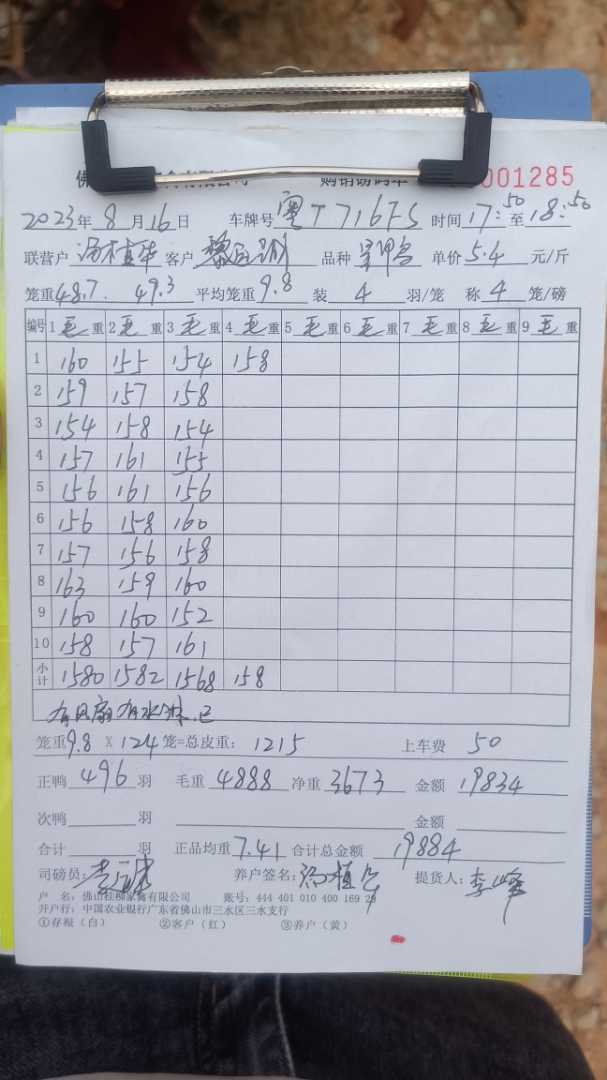 佛 有限公司 购销磅码单 001285
2023年 8 月 16 日 车牌号 粤T716F5 时间 17:50 至 18:50
联营户 汤植华 客户 品种 单价 5.4 元/斤
笼重 48.7. 49.3 平均笼重 9.8 装 4 羽/笼 称 4 笼/磅
编号 1 毛 重 2 毛 重 3 毛 重 4 毛 重 5 毛 重 6 毛 重 7 毛 重 8 毛 重 9 毛 重
1 160 155 154 158
2 159 157 158
3 154 158 154
4 157 161 155
5 156 161 156
6 156 158 160
7 157 156 158
8 163 159 160
9 160 160 152
10 158 157 161
小计 1580 1582 1568 158
有风扇有水淋
笼重 9.8 X 124 笼=总皮重: 1215 上车费 50
正鸭 496 羽 毛重 4888 净重 3673 金额 19834
次鸭 羽 金额
合计 羽 正品均重 7.41 合计总金额 19884
司磅员: 养户签名: 汤植华 提货人: 李峰
户 名: 佛山桂柳家禽有限公司 账号: 444 401 010 400 169 29
开户行: 中国农业银行广东省佛山市三水区三水支行
①存根(白) ②客户(红) ③养户(黄)